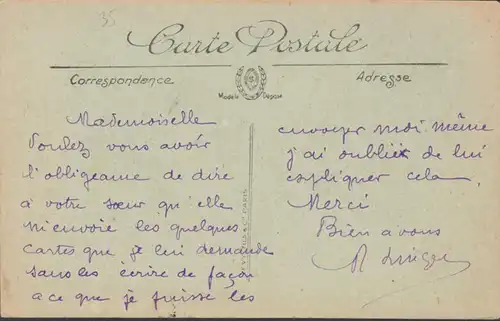 35
Carte Postale
Correspondence
Adresse
Modèle Déposé
Mademoiselle
Voulez vous avoir
l'obligeame de dire
à votre sœur qu'elle
m'envoie les quelques
cartes que je lui demande
sans les écrire de façon
a ce que je puisse les
envoyer moi même
j'ai oublier de lui
expliquer cela.
Merci
Bien a vous